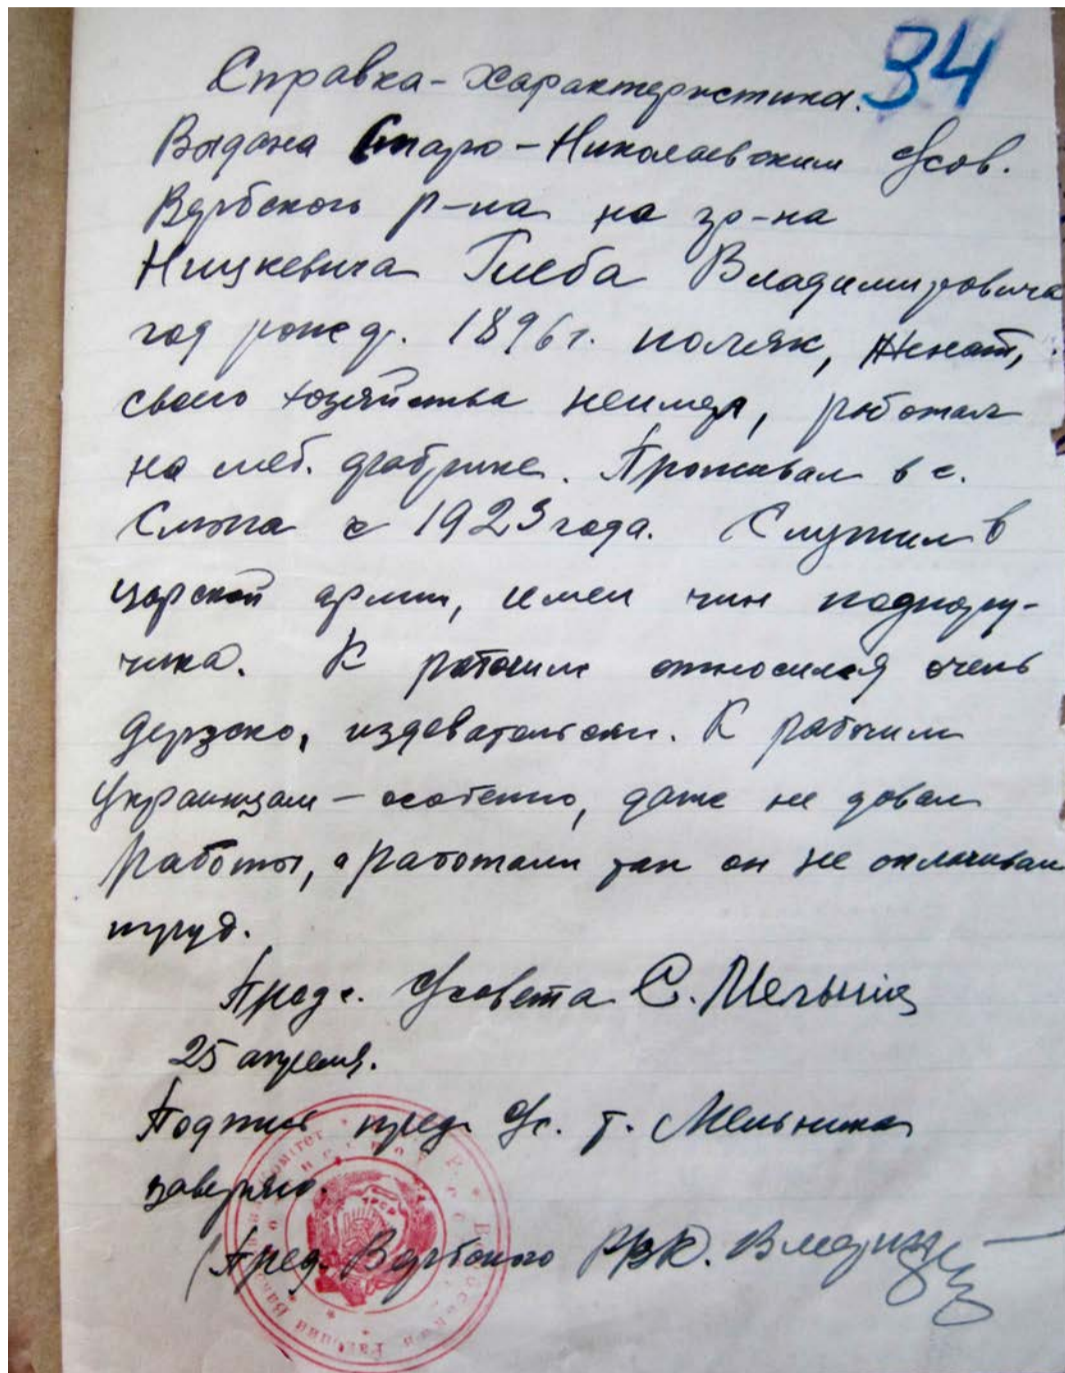 34
Справка-характеристика.
Выдана Старо-Николаевским с/сов.
Вербского р-на на гр-на
Ницкевича Глеба Владимировича
год рожд. 1896 г. поляк, женат,
своего хозяйства неимел, работал
на меб. фабрике. Проживал в с.
с 1923 года. Служил в
царской армии, имел чин подпору-
чика. К рабочим относился очень
дерзко, издевательски. К рабочим
Украинцам – особенно, даже не давал
работы, а работали так он не оплачивал
труд.
Пред. с/совета С. Мельник
25 апреля.
Подпись пред. с/с. т. Мельника
заверяю.
(Пред. Вербского РИК.